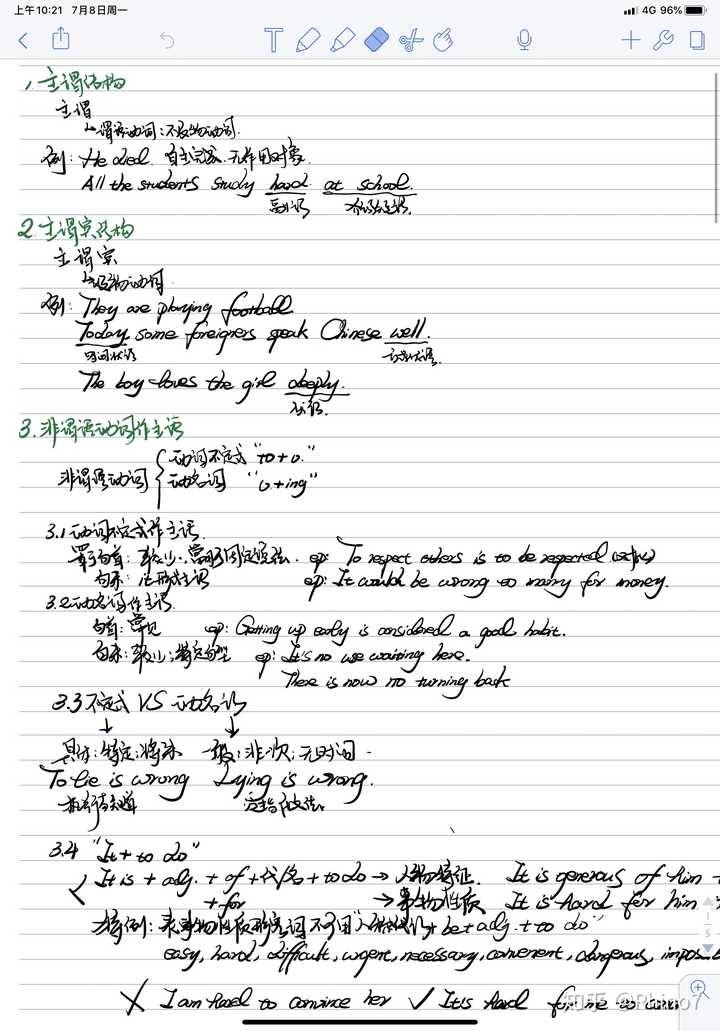 上午10:21 7月8日周一
4G 96%
1. 主谓结构
主谓
↳谓语动词:不及物动词.
例: He died. 自主完成.无作用对象.
All the students study hard at school.
2.主谓宾结构
主谓宾
↳及物动词.
例: They are playing football
Today, some foreigners speak Chinese well.
时间状语
The boy loves the girl deeply.
3.非谓语动词作主语
非谓语动词 { 动词不定式 "to+v."
动名词 "v+ing"
3.1 动词不定式作主语.
To respect others is to be respected
句末: eg: It would be wrong to marry for money.
3.2动名词作主语.
句首:常见 eg: Getting up early is considered a good habit.
句末:较少;特定句型 eg: It's no use waiting here.
There is now no turning back
3.3 不定式 VS 动名词
↓ ↓
具体;特定;将来 一般;非一次;无时间.
To lie is wrong Lying is wrong.
3.4 "It + to do"
It is + adj. + of + 代/名 + to do → 人物特征. It is generous of him
+ for → 事物性质 It is hard for him
特例: 表事物性质形容词不可用 + be + adj. + to do"
easy, hard, difficult, urgent, necessary, convenient, dangerous,
✗ I am hard to convince her ✓ It's hard for me to
知乎 @Rhino7